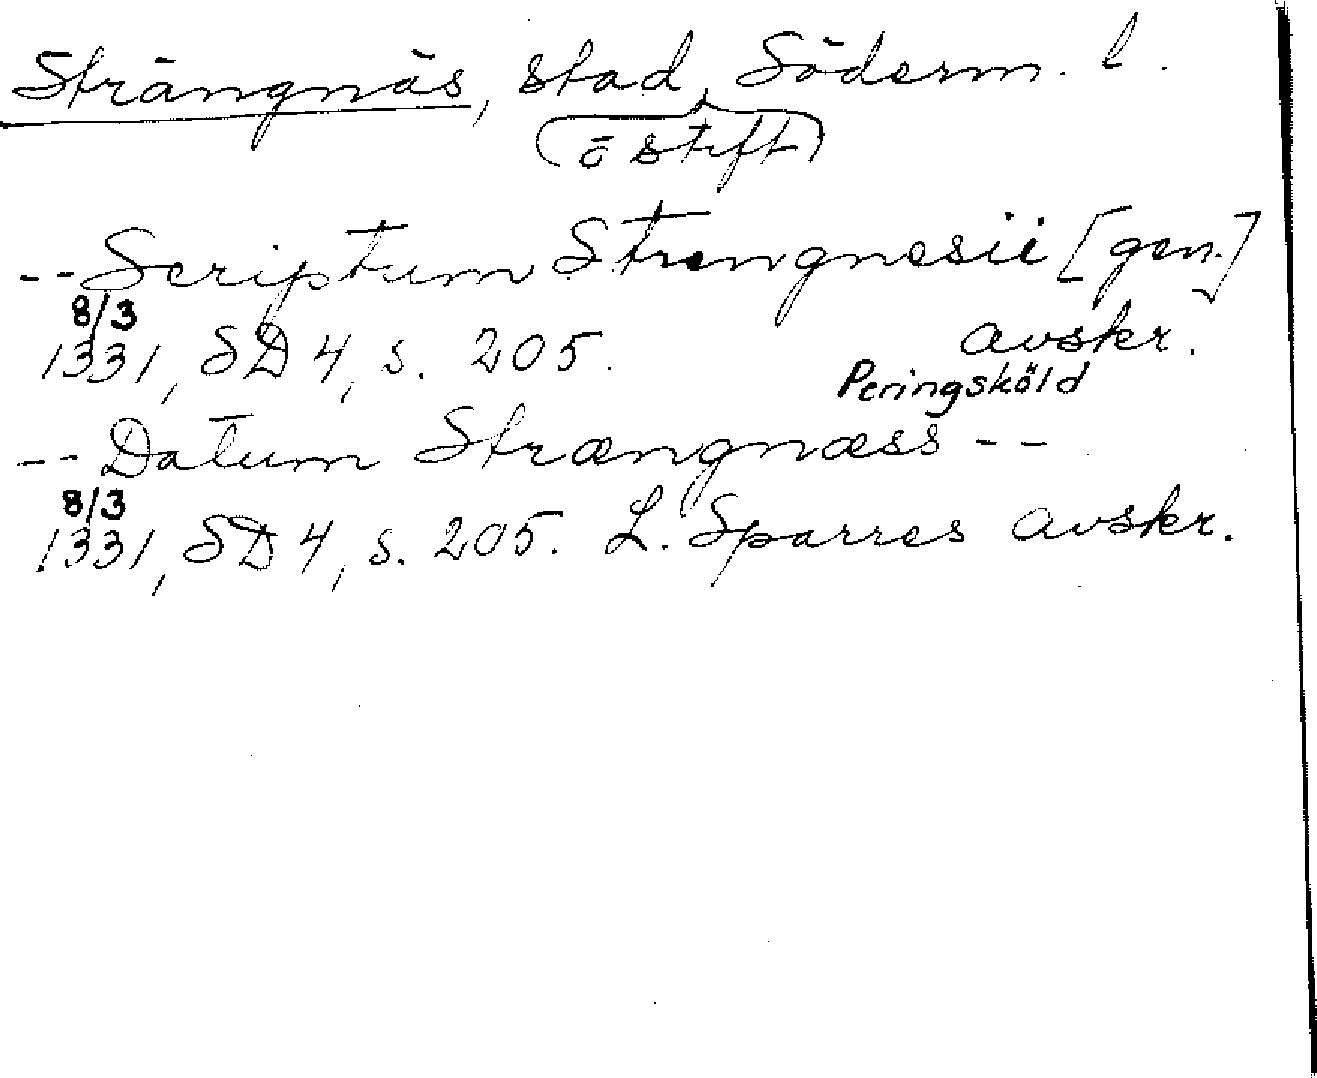 Strängnäs, stad, Söderm. l.
(o stift)
-- Scriptum Strengnesii [gen.]
8/3
1331, SD 4, s. 205. avskr.
Peringsköld
-- Datum Strængnæss --
8/3
1331, SD 4, s. 205. L. Sparres avskr.